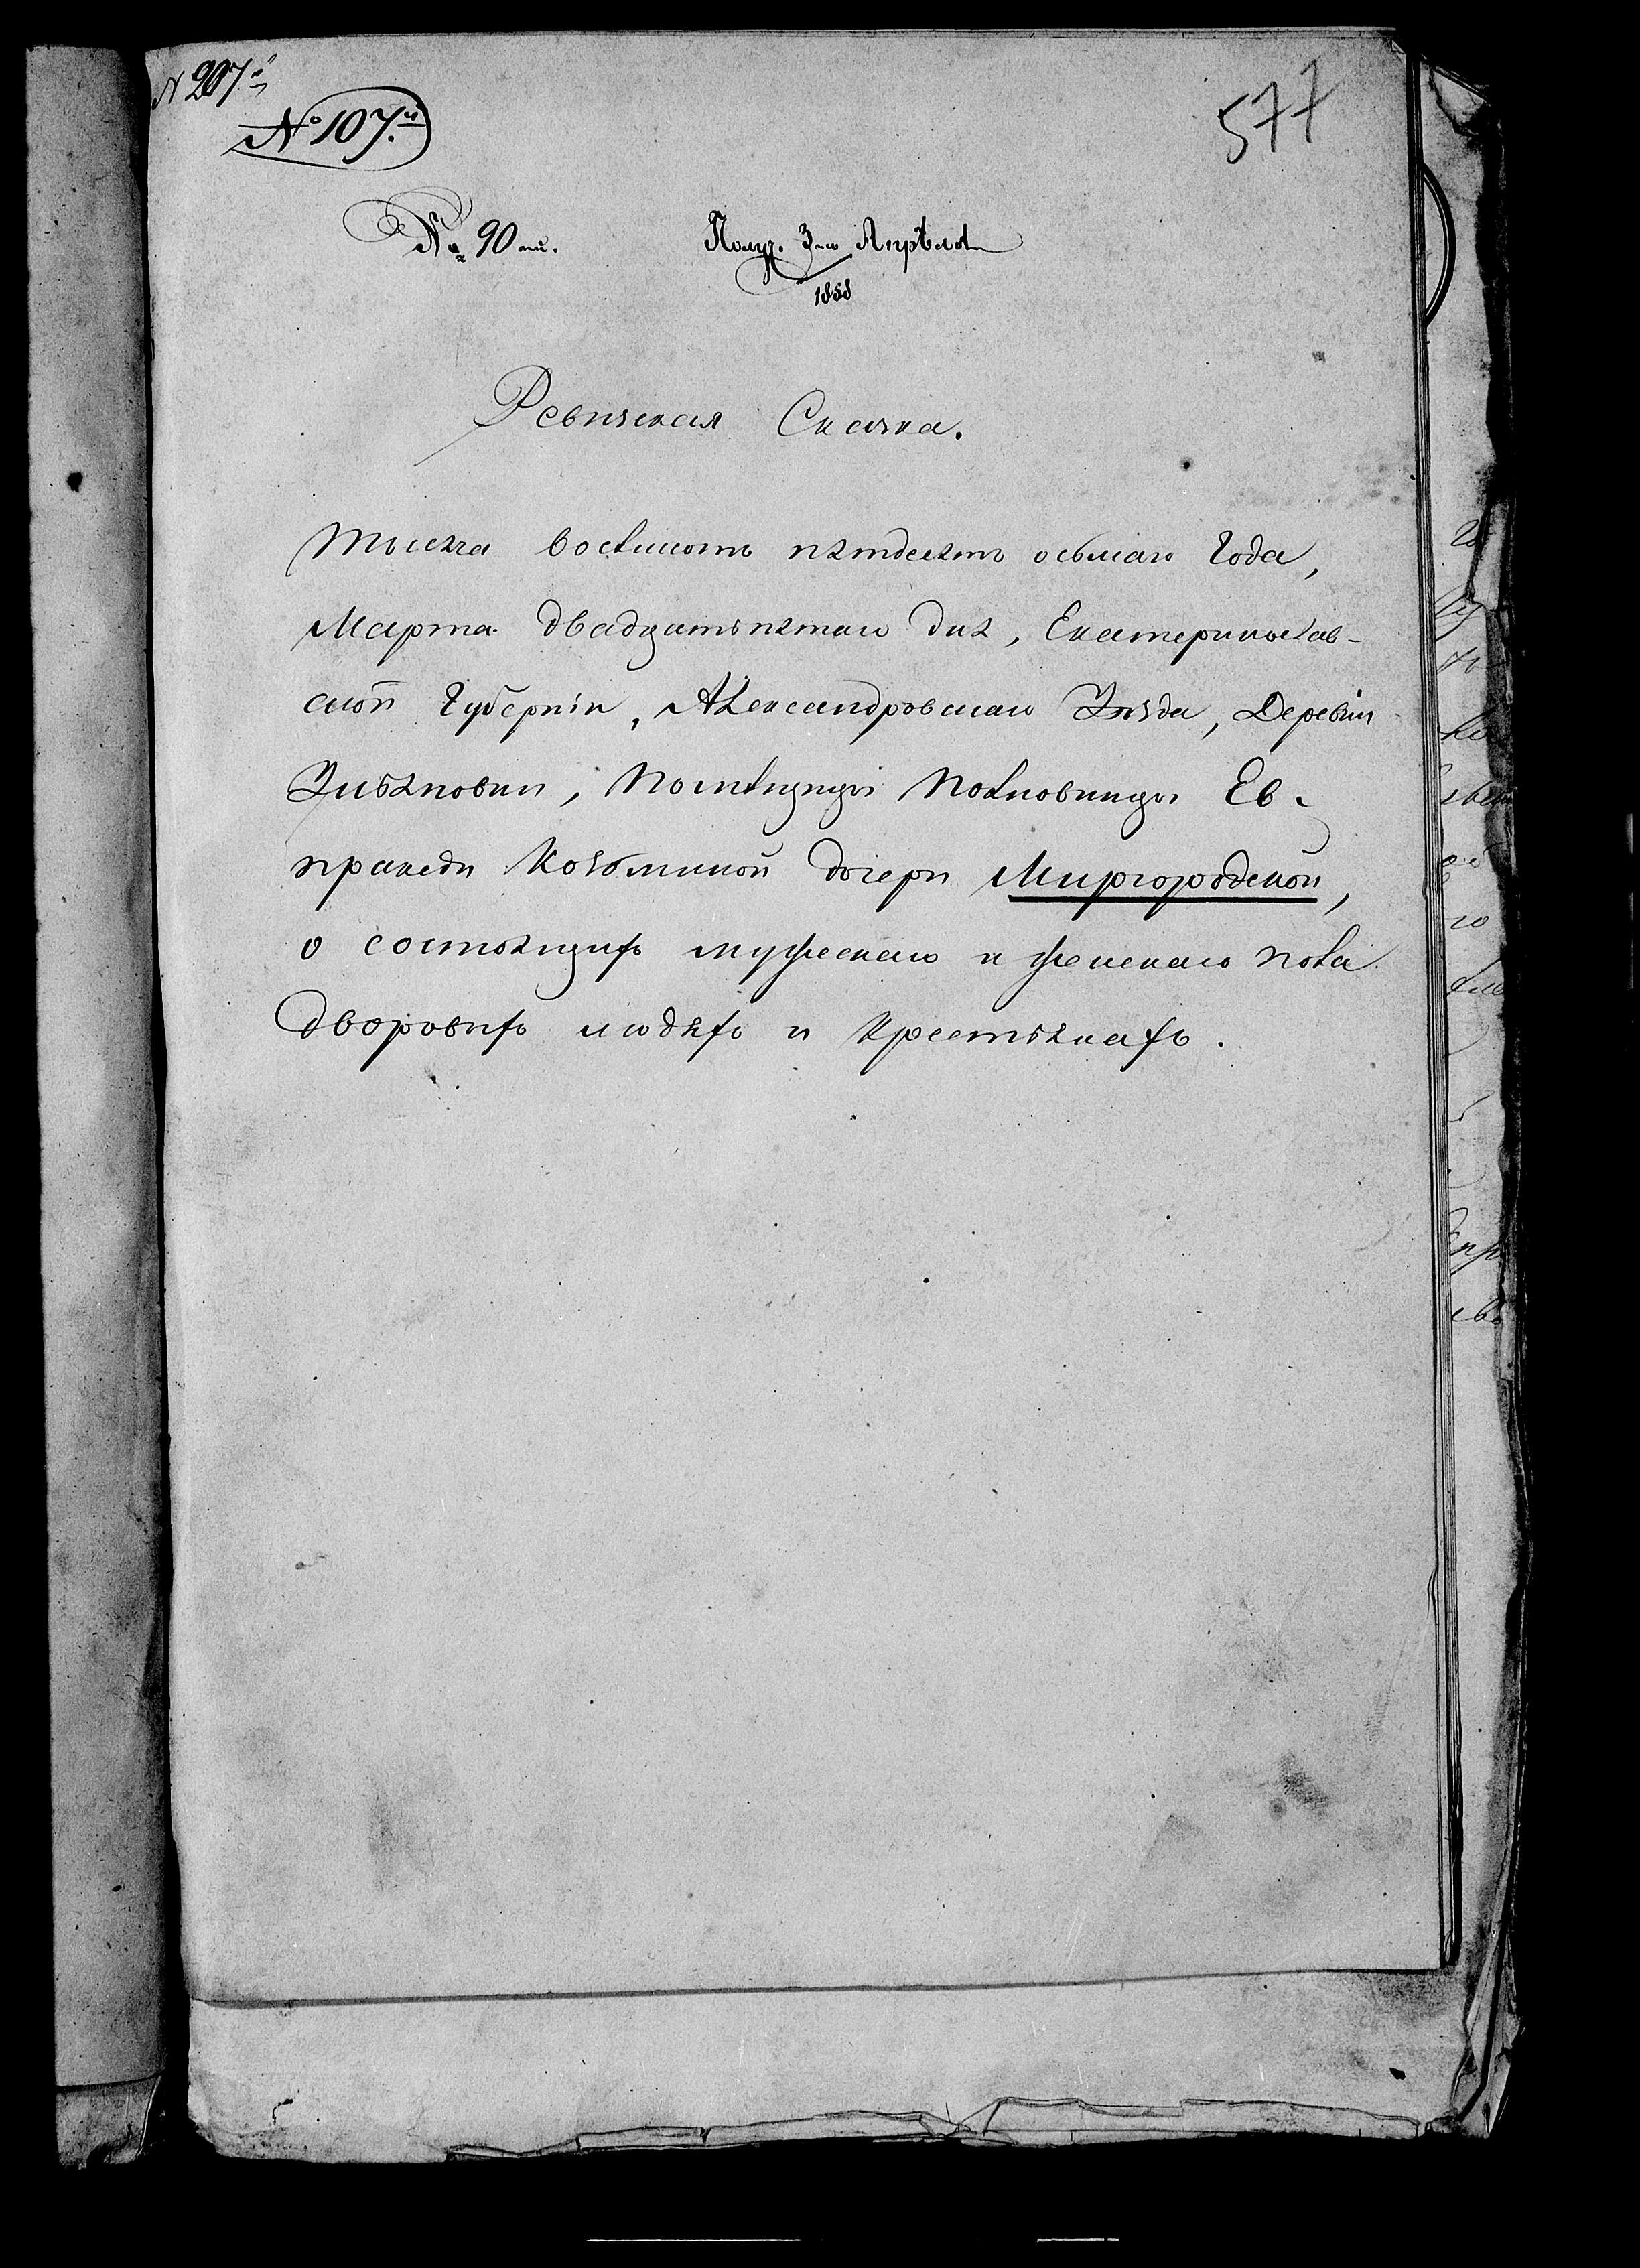 N 207й
№ 107.й
№ 90 ый.
Получ. 3го Апрѣля
1858
577
Ревизская Сказка.
Тысяча восемьсотъ пятдесятъ осьмаго Года,
Марта двадцатьпятаго дня, Екатеринослав-
ской Губерніи, Александровскаго Уѣзда, Деревни
Помѣщицы Полковницы Ев-
праксіи Козьминой дочери Миргородской,
о состоящихъ мужескаго и женскаго пола
дворовыхъ людяхъ и Крестьянахъ.